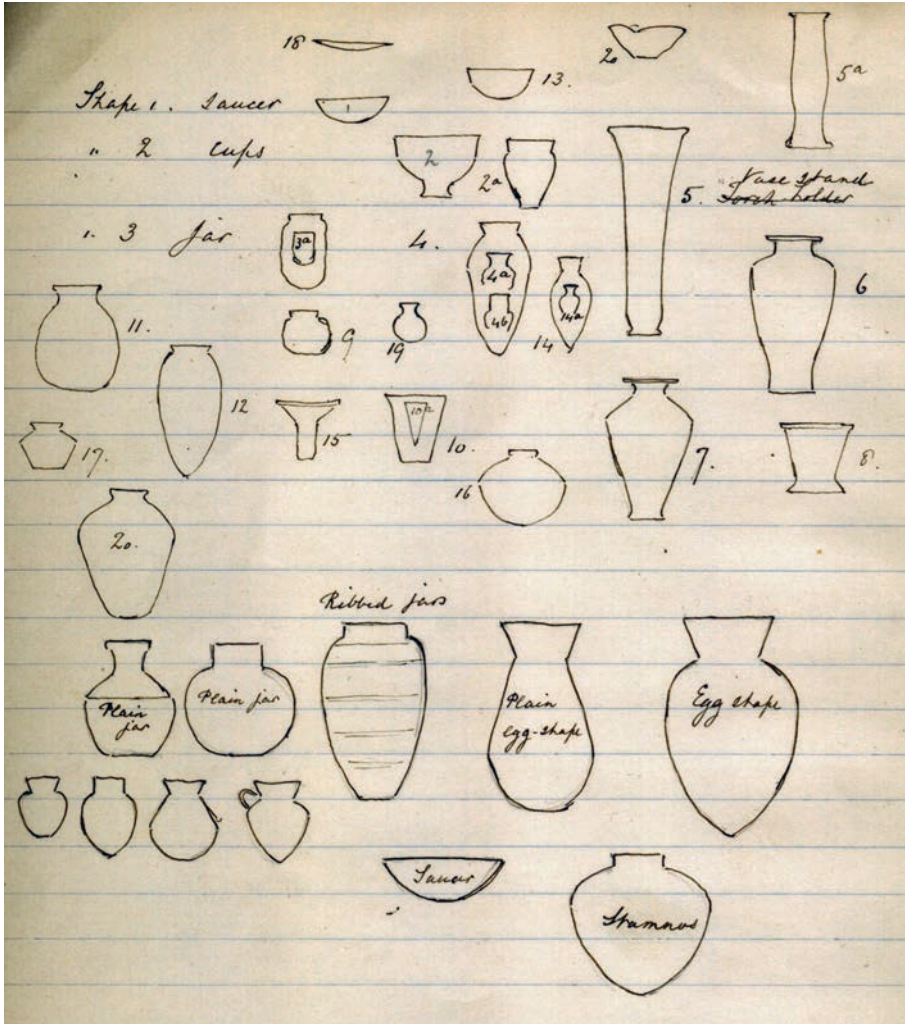 18
20
13
5a
Shape 1. Saucer
1
" 2 cups
2
2a
5. Vase stand
Torch holder
" 3 Jar
3a
4.
4a
4b
14
14a
6
11.
9
19
12
15
10a
10.
17.
16
7.
8.
20.
Ribbed jars
Plain
jar
Plain jar
Plain
egg-shape
Egg shape
Saucer
Stamnos